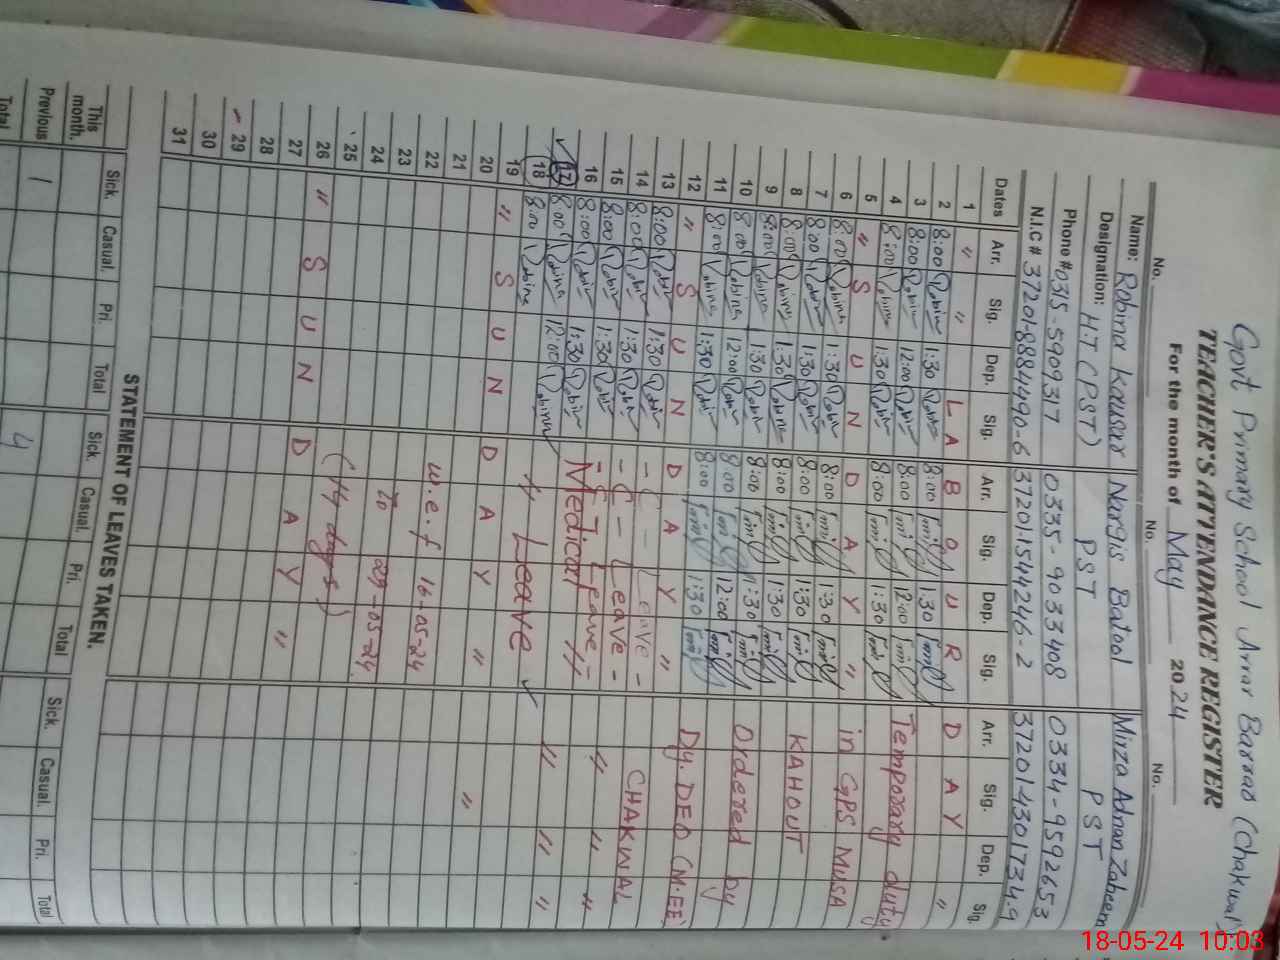 Govt Primary School Arrar Barrao (Chakwal).
TEACHER'S ATTENDANCE REGISTER
For the month of May 2024
No. No. No.
Name: Robina Kousar Nargis Batool Mirza Adnan Zaheem
Designation: H.T (PST) PST PST
Phone # 0315-5909317 0335-9033408 0334-9592653
N.I.C # 37201-8884490-6 37201-1544246-2 37201-4301734-9
Dates Arr. Sig. Dep. Sig. Arr. Sig. Dep. Sig. Arr. Sig. Dep. Sig.
1 " " L A B O U R D A Y "
2 8:00 Robina 1:30 Robina 8:00 1:30
3 8:00 Robina 12:00 Robina 8:00 12:00 Temporary duty
4 8:00 Robina 1:30 Robina 8:00 1:30
5 " S U N D A Y " in GPS MUSA
6 8:00 Robina 1:30 Robina 8:00 1:30
7 8:00 Robina 1:30 Robina 8:00 1:30 KAHOUT
8 8:00 Robina 1:30 Robina 8:00 1:30
9 8:00 Robina 1:30 Robina 8:00 1:30 Ordered by
10 8:00 Robina 12:00 Robina 8:00 12:00
11 8:00 Robina 1:30 Robina 8:00 1:30
12 " S U N D A Y " Dy. DEO (M.EE)
13 8:00 Robina 1:30 Robina - C - Leave -
14 8:00 Robina 1:30 Robina - C - Leave - CHAKWAL
15 8:00 Robina 1:30 Robina - C - Leave -
16 8:00 Robina 1:30 Robina Medical " " " "
17 8:00 Robina 1:30 Robina
18 8:00 Robina 12:00 Robina " Leave " " "
19 " S U N D A Y "
20 "
21
22 w.e.f 16-05-24
23
24 To 29-05-24
25
26 " S U N D A Y " (14 days)
27
28
29
30
31
STATEMENT OF LEAVES TAKEN.
Sick. Casual. Pri. Total Sick. Casual. Pri. Total Sick. Casual. Pri. Total
This month.
Previous 1 4
Total
18-05-24 10:03